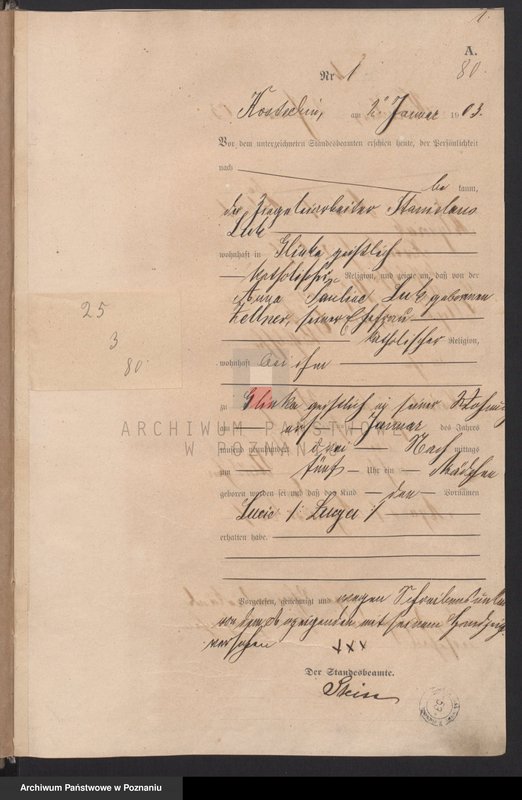 1.
A.
80.
Nr 1
am 2ten Januar 1903.
Vor dem unterzeichneten Standesbeamten erschien heute, der Persönlichkeit
nach
be kannt,
der Ziegeleiarbeiter Stanislaus
wohnhaft in Glinka geistlich
katholischer Religion, und zeigte an, daß von der
Anna Pauline geborenen
Zellner, seiner Ehefrau
katholischer Religion,
wohnhaft bei ihm
25
3
80.
zu Glinka geistlich in seiner Wohnung
am Januar des Jahres
tausend neunhundert drei Nach mittags
um fünf Uhr ein Mädchen
geboren worden sei und daß das Kind den Vornamen
Lucie
erhalten habe.
ARCHIWUM PAŃSTWOWE
W POZNANIU
Vorgelesen, genehmigt und wegen
von dem Anzeigenden mit seinem
versehen
+++
Der Standesbeamte.
Archiwum Państwowe w Poznaniu